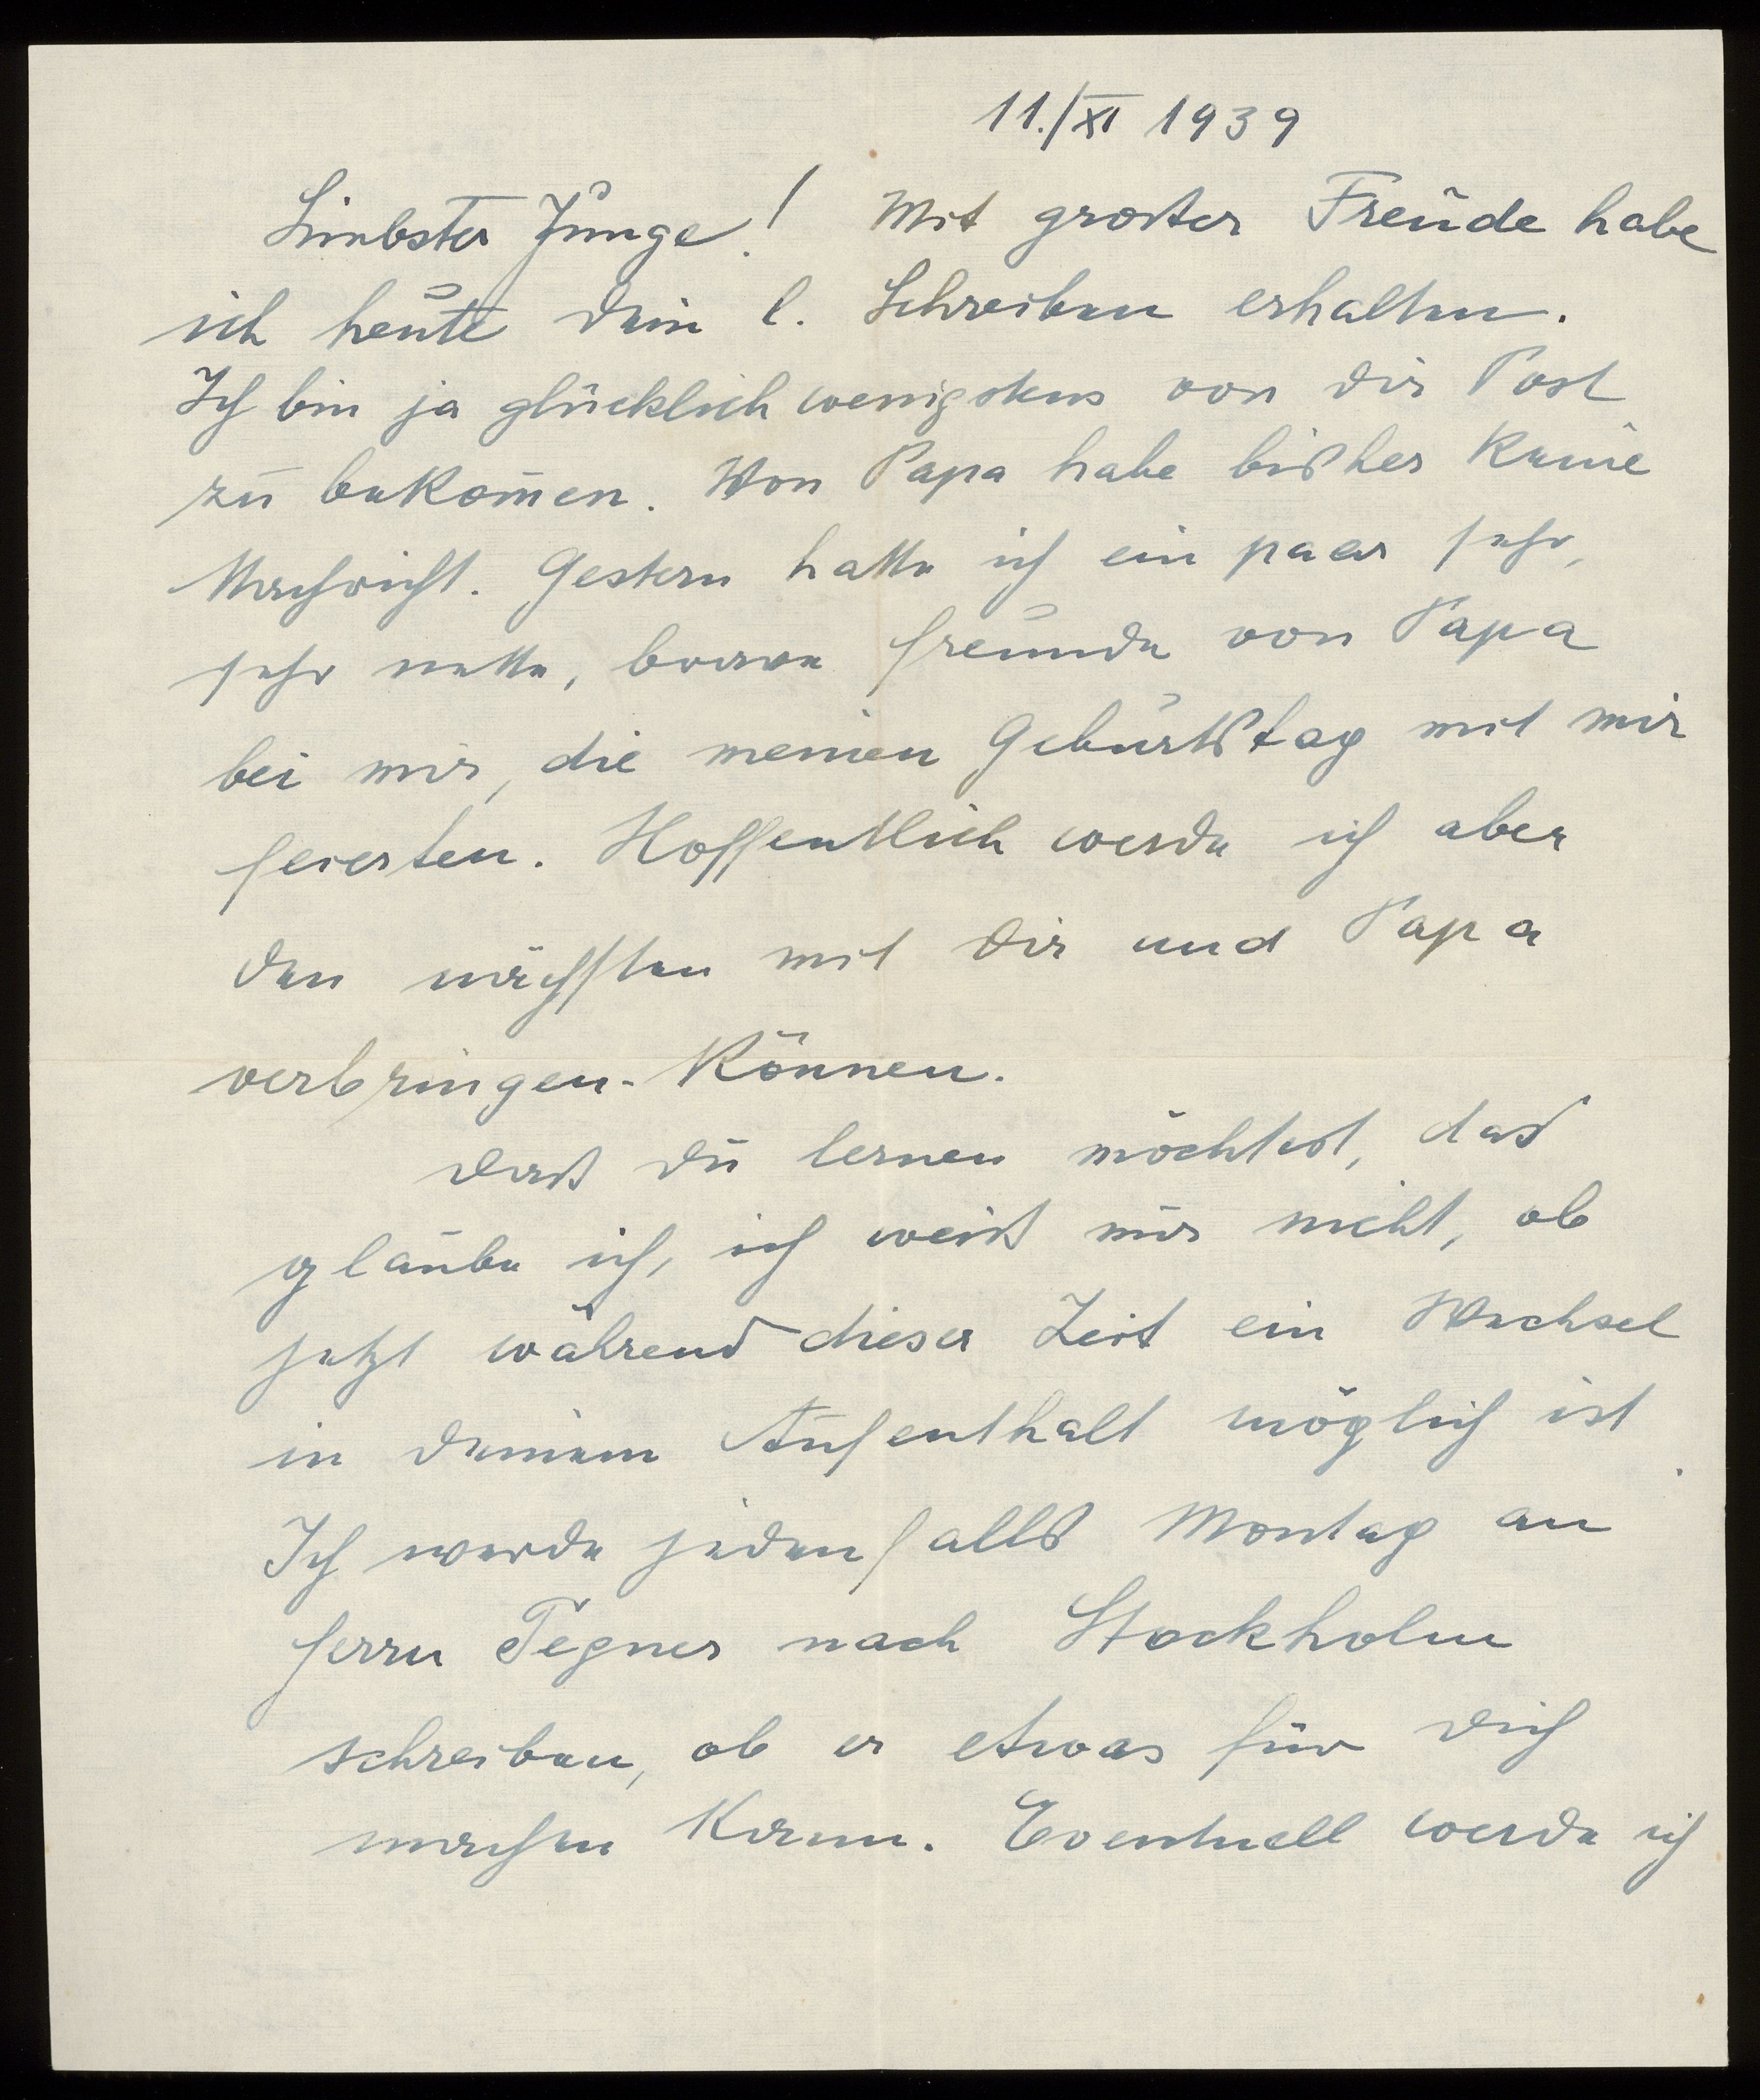 11./XI 1939
Liebster Junge! Mit grosster Freude habe
ich heute Dein l. Schreiben erhalten.
Ich bin ja glücklich wenigstens von Dir Post
zu bekom̄en. Von Papa habe bisher keine
Nachricht. Gestern hatte ich ein paar sehr,
sehr nette, brave Freunde von Papa
bei mir, die meinen Geburtstag mit mir
feierten. Hoffentlich werde ich aber
den nächsten mit Dir und Papa
verbringen können.
Dass Du lernen möchtest, das
glaube ich, ich weiss nur nicht, ob
jetzt während dieser Zeit ein Wechsel
in Deinem Aufenthalt möglich ist
Ich werde jedenfalls Montag an
Herrn Tegner nach Stockholm
schreiben, ob er etwas für Dich
machen kann. Eventuell werde ich